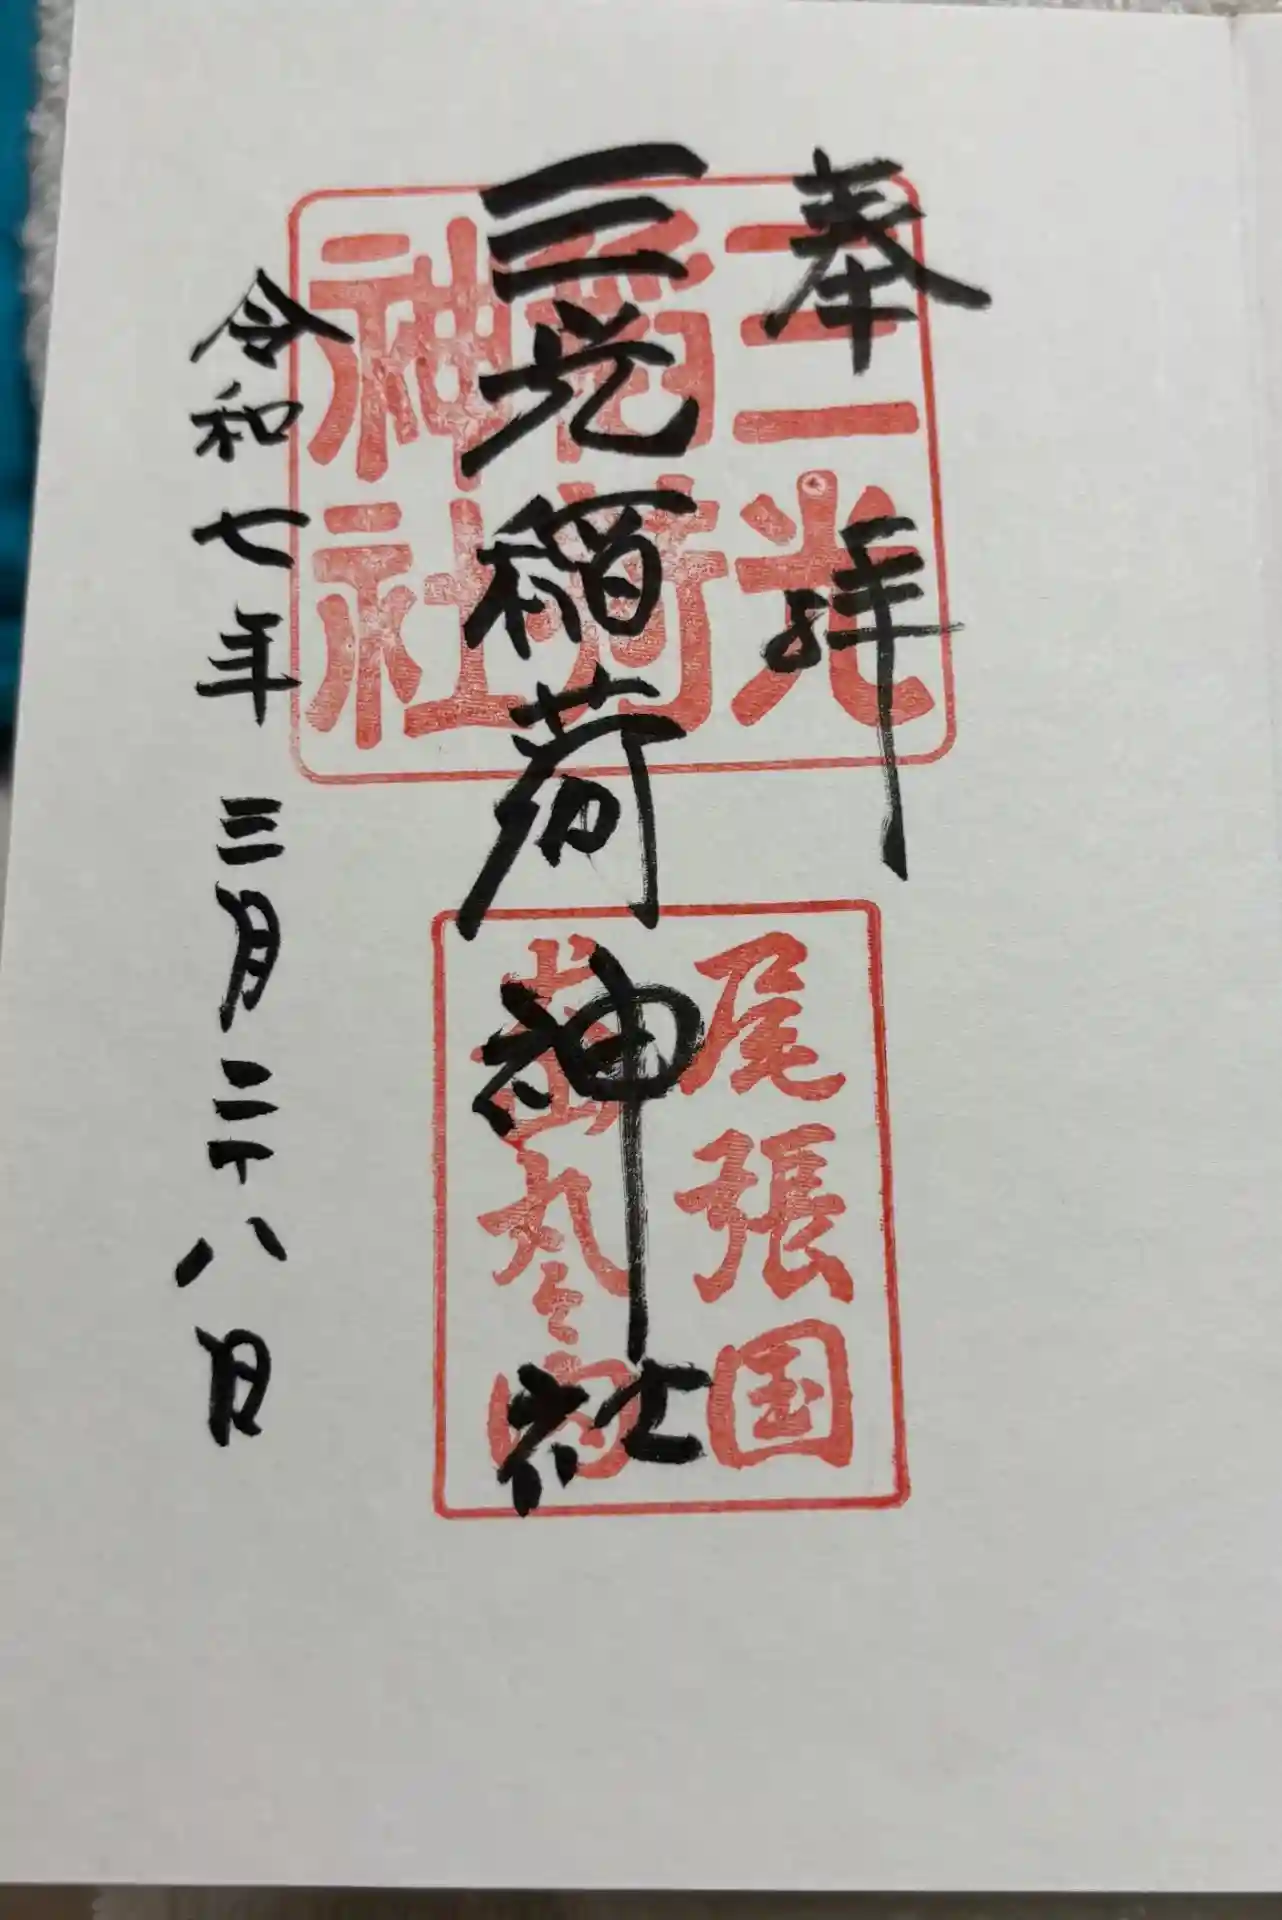 奉拝
三光稲荷神社
令和七年三月二十八日
三光
稲荷
神社
尾張国
犬山丸之内